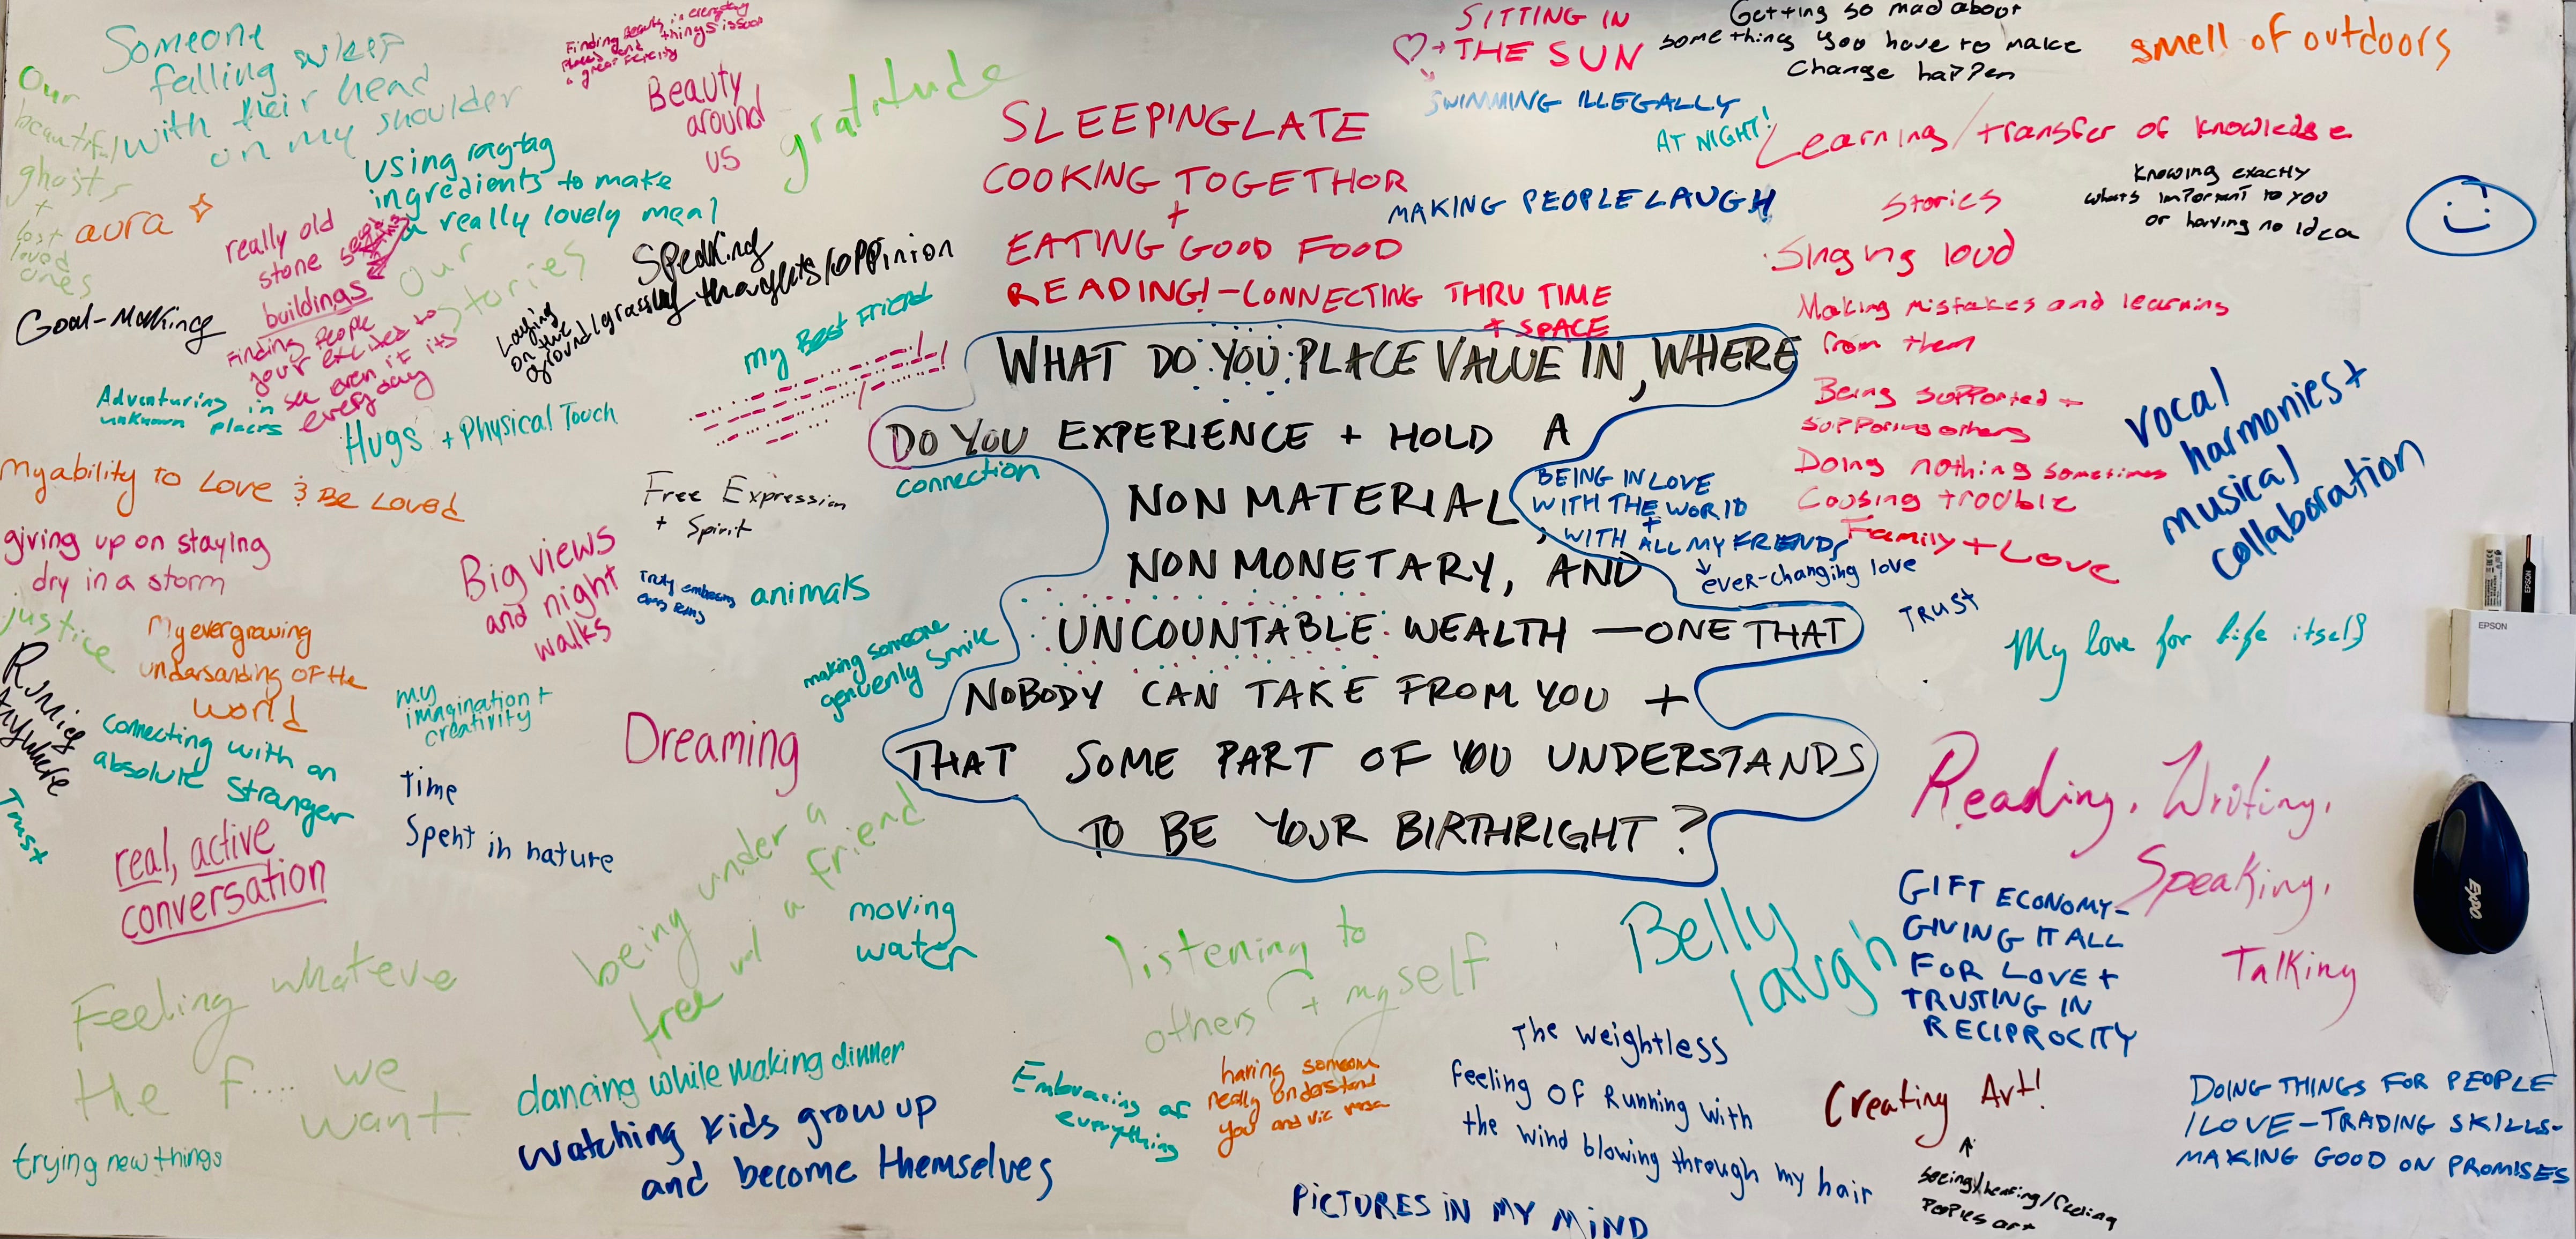 Someone
falling asleep
with their head
on my shoulder
Our
beautiful
ghosts
+
lost
loved
ones
aura
Finding Beauty in everyday
places and things is such
a great
Beauty
around
us
gratitude
using ragtag
ingredients to make
a really lovely meal
really old
stone
buildings
our
stories
Goal-Making
Finding People
your excited to
see even if its
everyday
Speaking
thoughts/oppinion
Laying
on the
ground/grass
my Best Friend
Adventuring in
unknown places
Hugs + Physical Touch
My ability to Love & Be Loved
giving up on staying
dry in a storm
justice
My evergrowing
undersanding OF the
world
Running
anywhere
Trust
connecting with an
absolute Stranger
real, active
conversation
Free Expression
+ Spirit
Big views
and night
walks
Truly embracing
every being
animals
making someone
genuenly smile
my
imagination +
creativity
Dreaming
time
Spent in nature
being under a
tree w/ a friend
moving
water
Feeling whateve
the f.... we
want
trying new things
dancing while making dinner
watching kids grow up
and become themselves
SITTING IN
THE SUN
Getting so mad about
something you have to make
change happen
smell of outdoors
SWIMMING ILLEGALLY
AT NIGHT!
SLEEPING LATE
COOKING TOGETHOR
+
EATING GOOD FOOD
READING! - CONNECTING THRU TIME
+ SPACE
MAKING PEOPLE LAUGH
Learning/transfer of knowledge
Stories
knowing exactly
whats important to you
or having no idea
Singing loud
Making mistakes and learning
from them
Being supported +
supporing others
Doing nothing sometimes
Causing trouble
Family + Love
vocal
harmonies +
musical
collaboration
WHAT DO YOU PLACE VALUE IN, WHERE
DO YOU EXPERIENCE + HOLD A
NON MATERIAL,
NON MONETARY, AND
UNCOUNTABLE WEALTH — ONE THAT
NOBODY CAN TAKE FROM YOU +
THAT SOME PART OF YOU UNDERSTANDS
TO BE YOUR BIRTHRIGHT?
connection
BEING IN LOVE
WITH THE WORLD
+
WITH ALL MY FRIENDS
ever-changing love
TRUST
My love for life itself
EPSON
EPSON
Reading, Writing,
Speaking,
Talking
EXPO
listening to
others + myself
Belly
laugh
GIFT ECONOMY-
GIVING IT ALL
FOR LOVE +
TRUSTING IN
RECIPROCITY
Embracing of
everything
having someone
really understand
you and
The weightless
feeling of Running with
the wind blowing through my hair
PICTURES IN MY MIND
Creating Art!
seeing/hearing/feeling
Peoples art
DOING THINGS FOR PEOPLE
I LOVE - TRADING SKILLS-
MAKING GOOD ON PROMISES